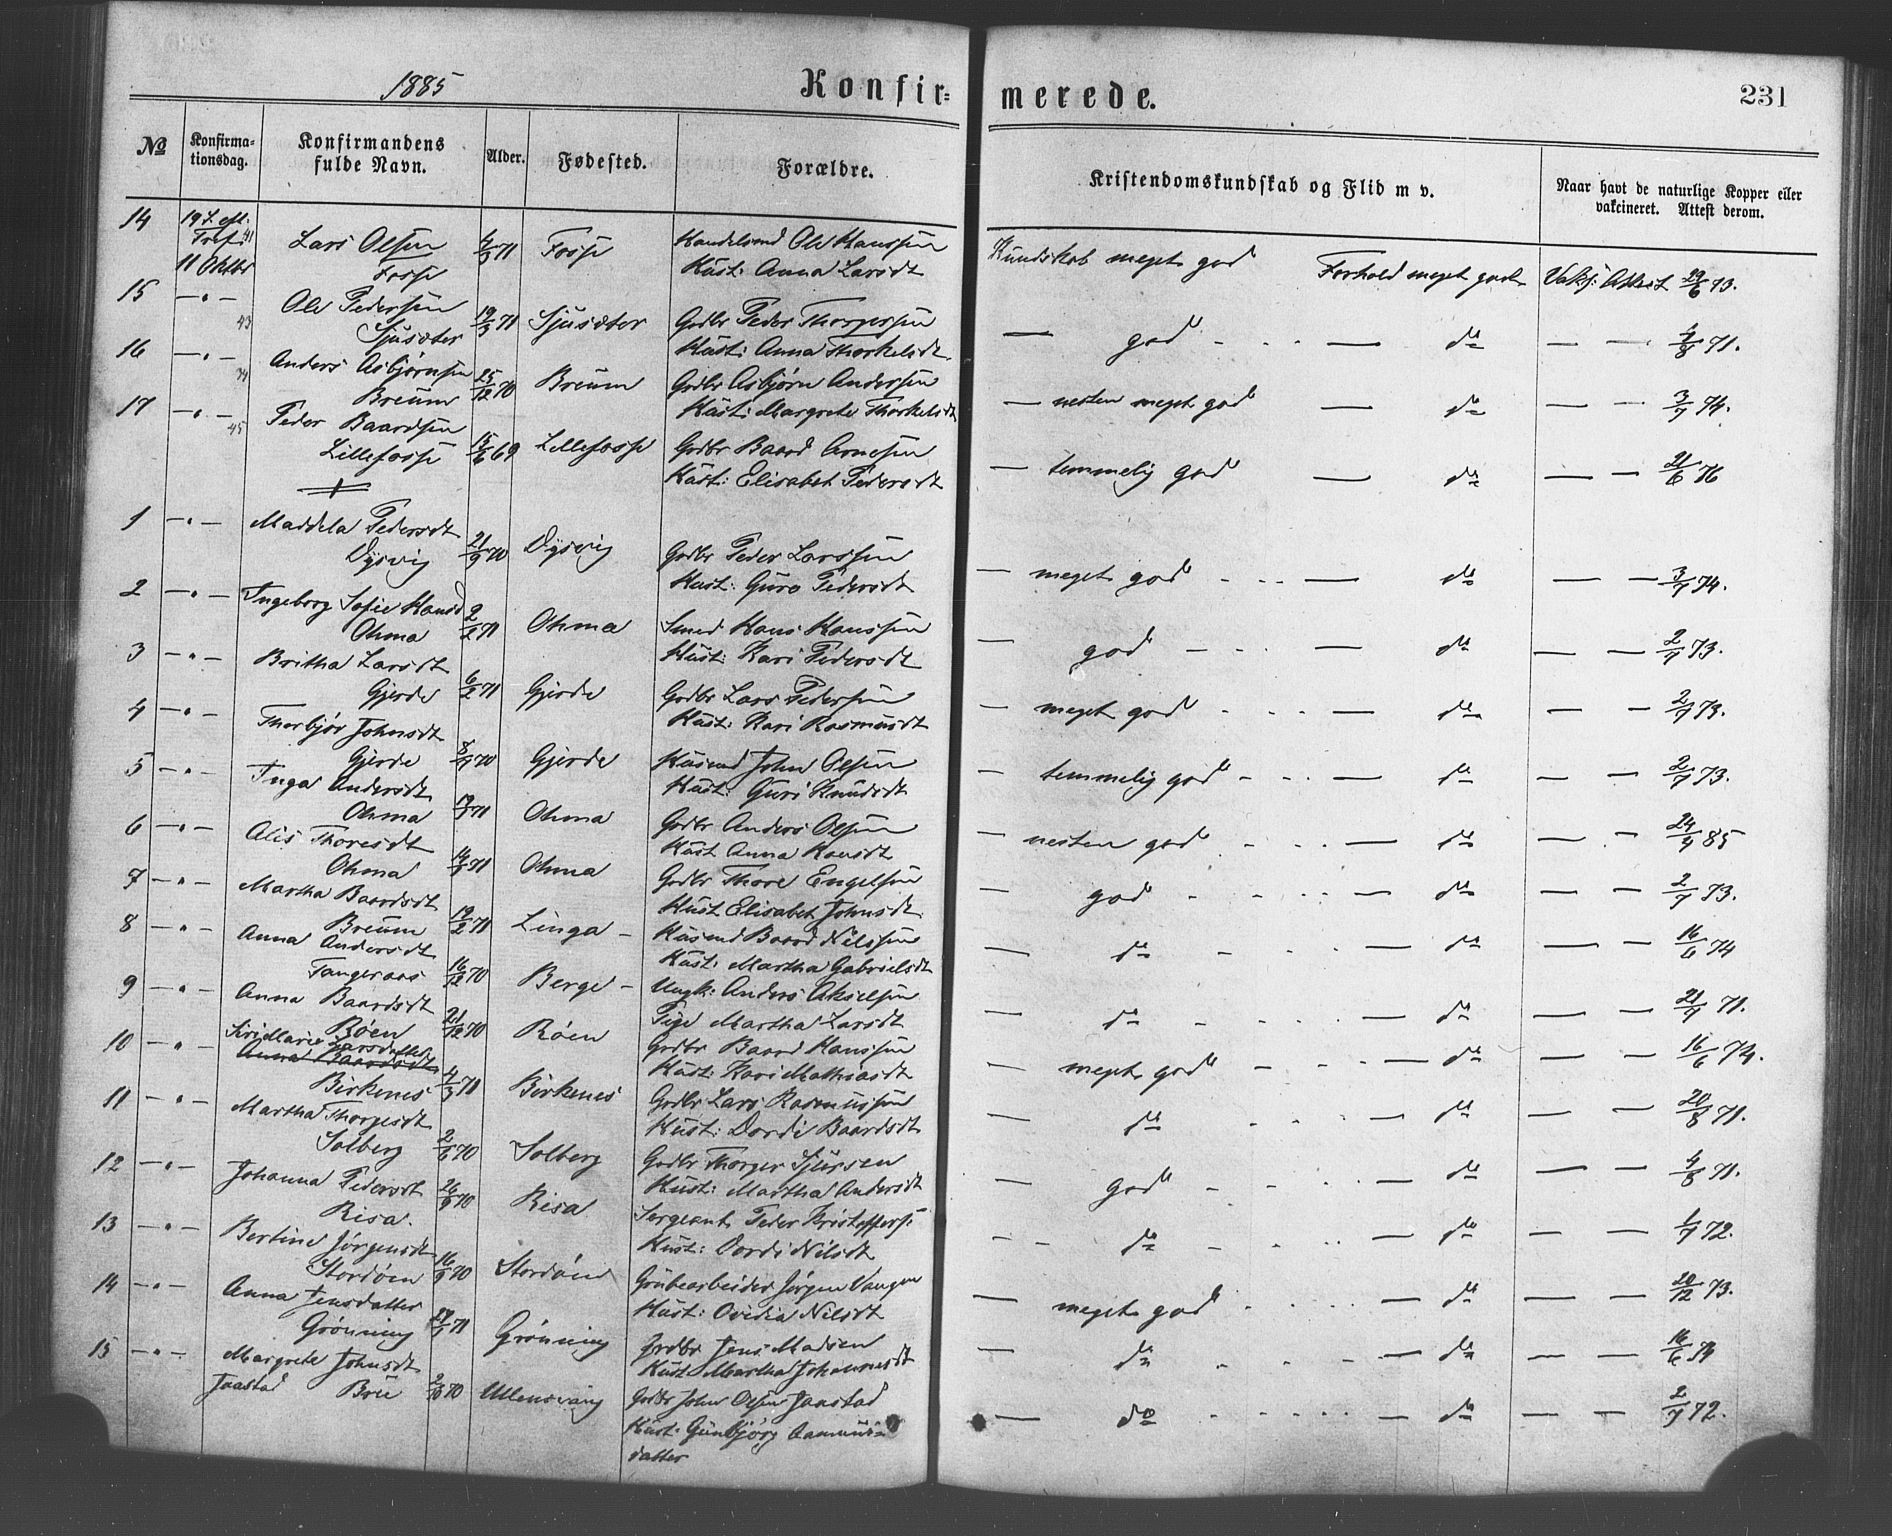 1885 Konfir= merede. 231
№ Konfirma-tionsdag. Konfirmandens fulde Navn. Alder. Fødested. Forældre. Kristendomskundskab og Flid m v. Naar havt de naturlige Kopper eller vakcineret. Attest derom.
14 19 S. eft. Lars Olsen 71 Fosse Handelsmd Ole Hanssen Kundskab meget god Forhold meget godt Vaks: Attest 29/6 73.
Tref. 41 Fosse Hust: Anna Larsdt
11 Oktbr
15 — " — Ole Pedersen 19/3 71 Sjusæter Gdbr Peder Thorgersen — god - - - — do — — 4/8 71.
43 Sjusæter Hust: Anna Thorkelsdt
16 — " — Anders Asbjørnsen 25/12 70 Breum Gdbr Asbjørn Andersen — nesten meget god — do — — 3/7 74.
Breum Hust: Margrete Thorkelsdt
17 — " — Peder Baardsen 15/6 69 Lillefosse Gdbr Baard Arnesen — temmelig god — do — — 21/6 76
45 Lillefosse Hust: Elisabet Pedersdt
1 — " — Maddela Pedersdt 21/9 70 Dysvig Gdbr Peder Larssen — meget god - - - — do — — 3/7 74.
Dysvig Hust: Guro Pedersdt
2 — " — Ingeborg Sofie Hansd 2/2 71 Ohma Smed Hans Hanssen — god - - - — do — — 2/7 73.
Ohma Hust: Kari Pedersdt
3 — " — Britha Larsdt 6/2 71 Gjerde Gdbr Lars Pedersen — meget god - - - — do — — 2/7 73.
Gjerde Hust: Kari Rasmusdt
4 — " — Thorbjør Johnsdt 70 Gjerde Husmd John Olsen — temmelig god - - - — do — — 2/7 73.
Gjerde Hust: Guri Knudsdt
5 — " — Inga Andersdt 71 Ohma Gdbr Anders Olsen — nesten god - - - — do — — 24/4 85
Ohma Hust Anna Hansdt
6 — " — Alis Thoresdt 71 Ohma Gdbr Thore Engelsen — god - - - — do — — 2/7 73.
Ohma Hust Elisabet Johnsdt.
7 — " — Martha Baardsdt 19/2 71 Linga — Husmd Baard Nilssen — do - - - — do — — 16/6 74
Breum Hust: Martha Gabrielsdt
8 — " — Anna Andersdt 16/12 70 Berge — Ungk: Anders Akselsen — do - - - — do — — 21/7 71.
Tangeraas Pige Martha Larsdt
9 — " — Anna Baardsdt 21/12 70 Röen Gdbr Baard Hanssen — meget god - — do — — 16/6 74.
Röen Hust: Kari Mathiasdt
10 — " — Siri Marie Larsdatter 4/3 71 Birkenes Gdbr Lars Rasmussen — do - - - — do — — 20/8 71.
Anna Baardsdt
Birkenes Hust: Dordi Baardsdt
11 — " — Martha Thorgersdt 2/6 70 Solberg Gdbr Thorger Sjursen — god - - - — do — — 4/8 71.
Solberg Hust: Martha Andersdt
12 — " — Johanna Pedersdt 26/9 70 Risa Sergeant Peder Kristoffers: - - do - - - — do — — 1/7 72.
Risa. Hust: Dordi Nilsdt
13 — " — Bertine Jørgensdt 16/9 70 Stordöen Grubearbeider Jørgen Vangen — meget god - - - — do — — 20/12 73.
Stordöen Hust: Ovidia Nilsdt
14 — " — Anna Jensdatter 71 Grönning Gdbr Jens Madsen — do - - - — do — — 16/6 74
Grönning Hust Martha Johannesdt
15 — " — Margrete Johnsdt 70 Ullensvang Gdbr John Olsen Jaastad — do - - - — do — — 2/7 72.
Jaastad Brü Hust: Gunbjörg Aamunds=
datter